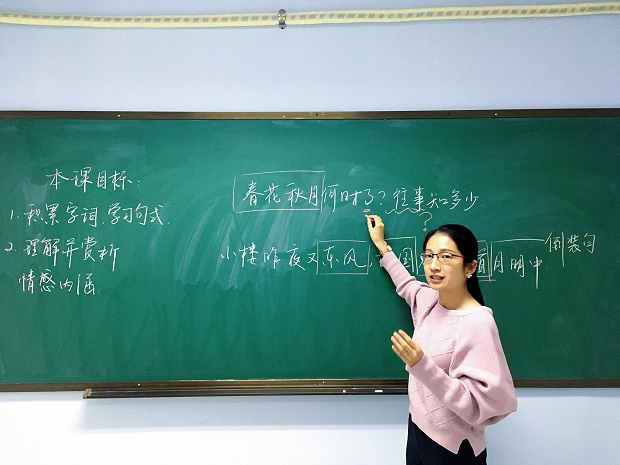 本课目标:
1. 积累字词 学习句式.
2. 理解并赏析
情感内涵
春花秋月何时了?往事知多少
?
小楼昨夜又东风,国首月明中
倒装句